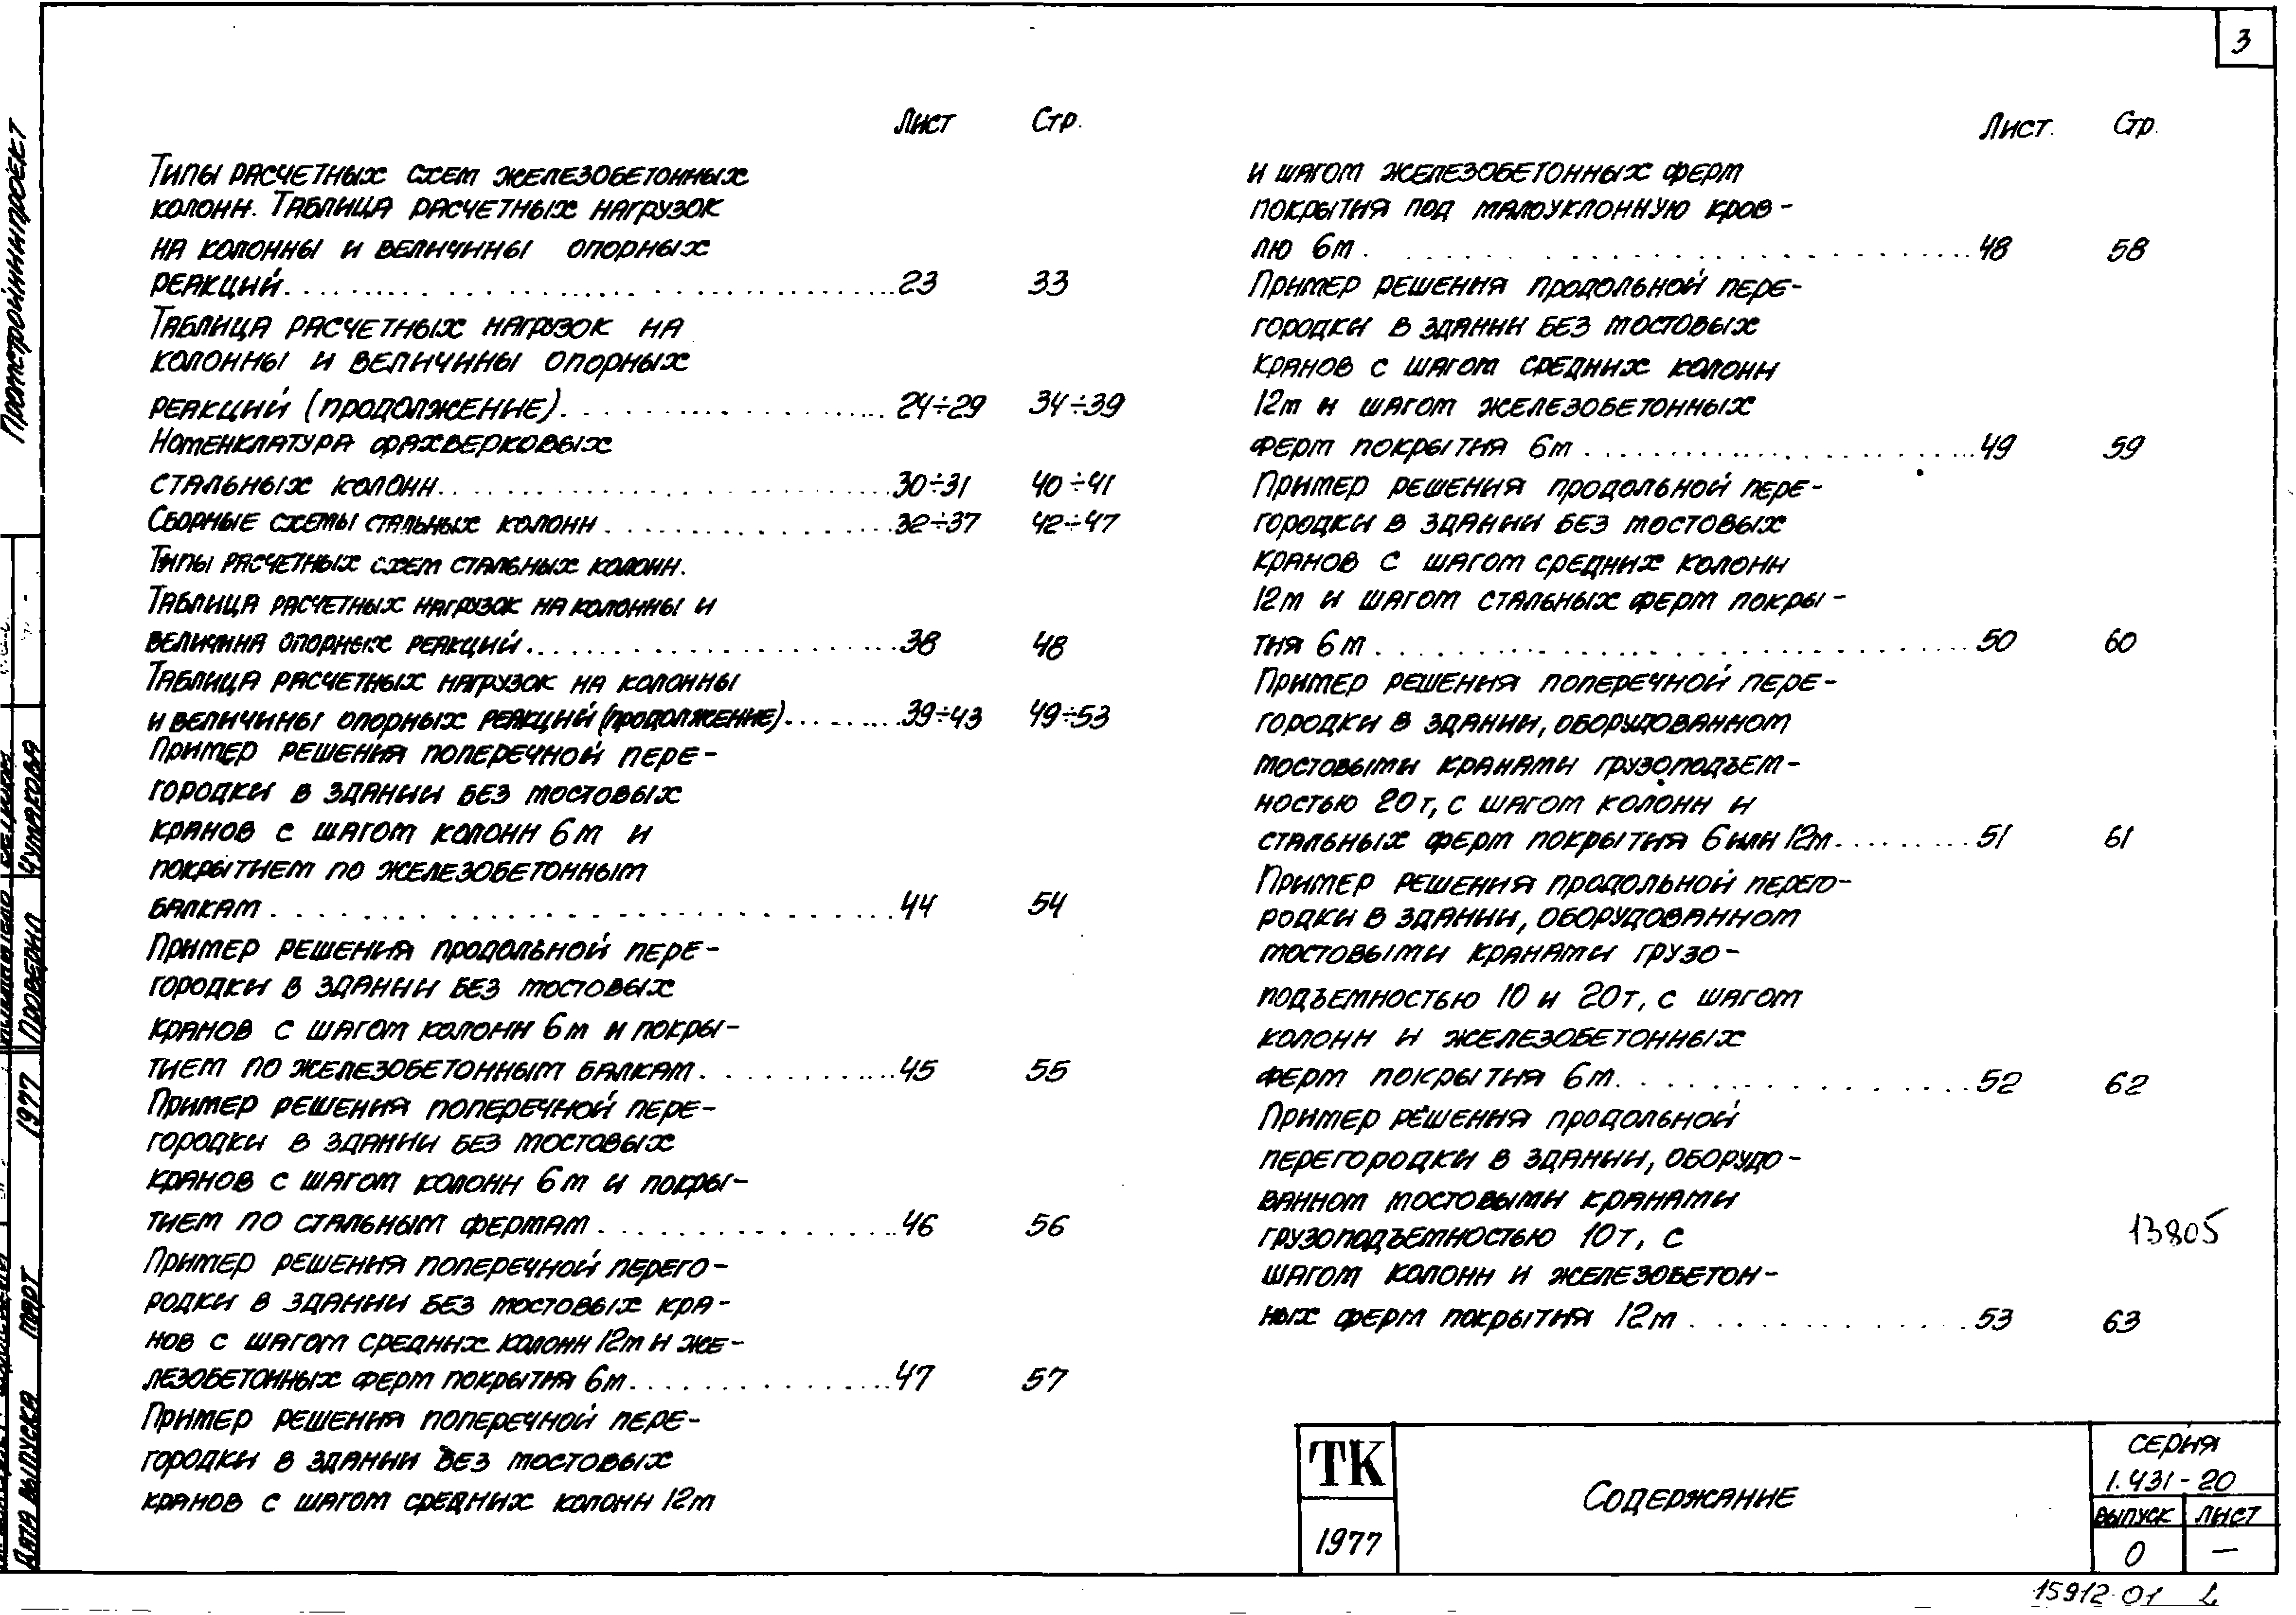 3
Лист Стр.
Типы расчетных схем железобетонных
колонн. Таблица расчетных нагрузок
на колонны и величины опорных
реакций.......... 23 33
Таблица расчетных нагрузок на
колонны и величины опорных
реакций (продолжение).......... 24÷29 34÷39
Номенклатура фахверковых
стальных колонн.......... 30÷31 40÷41
Сборные схемы стальных колонн.......... 32÷37 42÷47
Типы расчетных схем стальных колонн.
Таблица расчетных нагрузок на колонны и
величина опорных реакций.......... 38 48
Таблица расчетных нагрузок на колонны
и величины опорных реакций (продолжение).......... 39÷43 49÷53
Пример решения поперечной пере-
городки в здании без мостовых
кранов с шагом колонн 6м и
покрытием по железобетонным
балкам.......... 44 54
Пример решения продольной пере-
городки в здании без мостовых
кранов с шагом колонн 6м и покры-
тием по железобетонным балкам.......... 45 55
Пример решения поперечной пере-
городки в здании без мостовых
кранов с шагом колонн 6м и покры-
тием по стальным фермам.......... 46 56
Пример решения поперечной перего-
родки в здании без мостовых кра-
нов с шагом средних колонн 12м и же-
лезобетонных ферм покрытия 6м.......... 47 57
Пример решения поперечной пере-
городки в здании без мостовых
кранов с шагом средних колонн 12м
Лист. Стр.
и шагом железобетонных ферм
покрытия под малоуклонную кров-
лю 6м.......... 48 58
Пример решения продольной пере-
городки в здании без мостовых
кранов с шагом средних колонн
12м и шагом железобетонных
ферм покрытия 6м.......... 49 59
Пример решения продольной пере-
городки в здании без мостовых
кранов с шагом средних колонн
12м и шагом стальных ферм покры-
тия 6м.......... 50 60
Пример решения поперечной пере-
городки в здании, оборудованном
мостовыми кранами грузоподъем-
ностью 20т, с шагом колонн и
стальных ферм покрытия 6 или 12м.......... 51 61
Пример решения продольной перего-
родки в здании, оборудованном
мостовыми кранами грузо-
подъемностью 10 и 20т, с шагом
колонн и железобетонных
ферм покрытия 6м.......... 52 62
Пример решения продольной
перегородки в здании, оборудо-
ванном мостовыми кранами
грузоподъемностью 10т, с
шагом колонн и железобетон-
ных ферм покрытия 12м.......... 53 63
13805
ТК
1977
Содержание
серия
1.431-20
выпуск лист
0 —
15912-01
Промстройниипроект
Проверил Чумакова
Дата выпуска март 1977